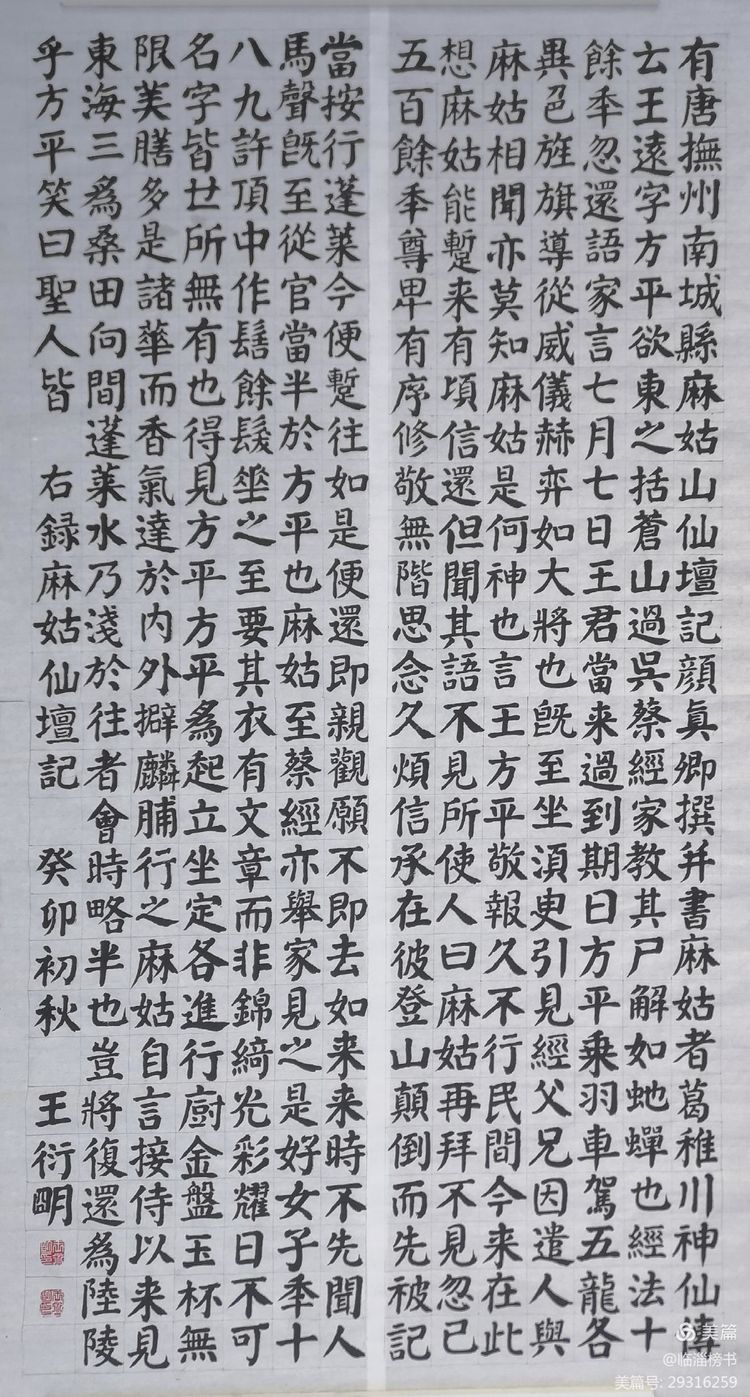 有唐撫州南城縣麻姑山仙壇記顔真卿撰并書麻姑者葛稚川神仙傳
云王遠字方平欲東之括蒼山過吳蔡經家教其尸解如虵蟬也經法十
餘季忽還語家言七月七日王君當来過到期日方平乗羽車駕五龍各
異色旌旗導從威儀赫弈如大將也旣至坐湏臾引見經父兄因遣人與
麻姑相聞亦莫知麻姑是何神也言王方平敬報久不行民間今来在此
想麻姑能蹔来有頃信還但聞其語不見所使人曰麻姑再拜不見忽已
五百餘季尊卑有序修敬無階思念久煩信承在彼登山顛倒而先被記
當按行蓬萊今便蹔往如是便還即親觀願不即去如来来時不先聞人
馬聲旣至從官當半於方平也麻姑至蔡經亦舉家見之是好女子季十
八九許頂中作髻餘髮垂之至要其衣有文章而非錦綺光彩耀日不可
名字皆世所無有也得見方平方平爲起立坐定各進行廚金盤玉杯無
限美膳多是諸華而香氣達於内外擗麟脯行之麻姑自言接侍以来見
東海三爲桑田向間蓬萊水乃淺於往者會時略半也豈將復還爲陸陵
乎方平笑曰聖人皆 右錄麻姑仙壇記 癸卯初秋 王衍明
美篇
@临淄榜书
美篇号: 29316259